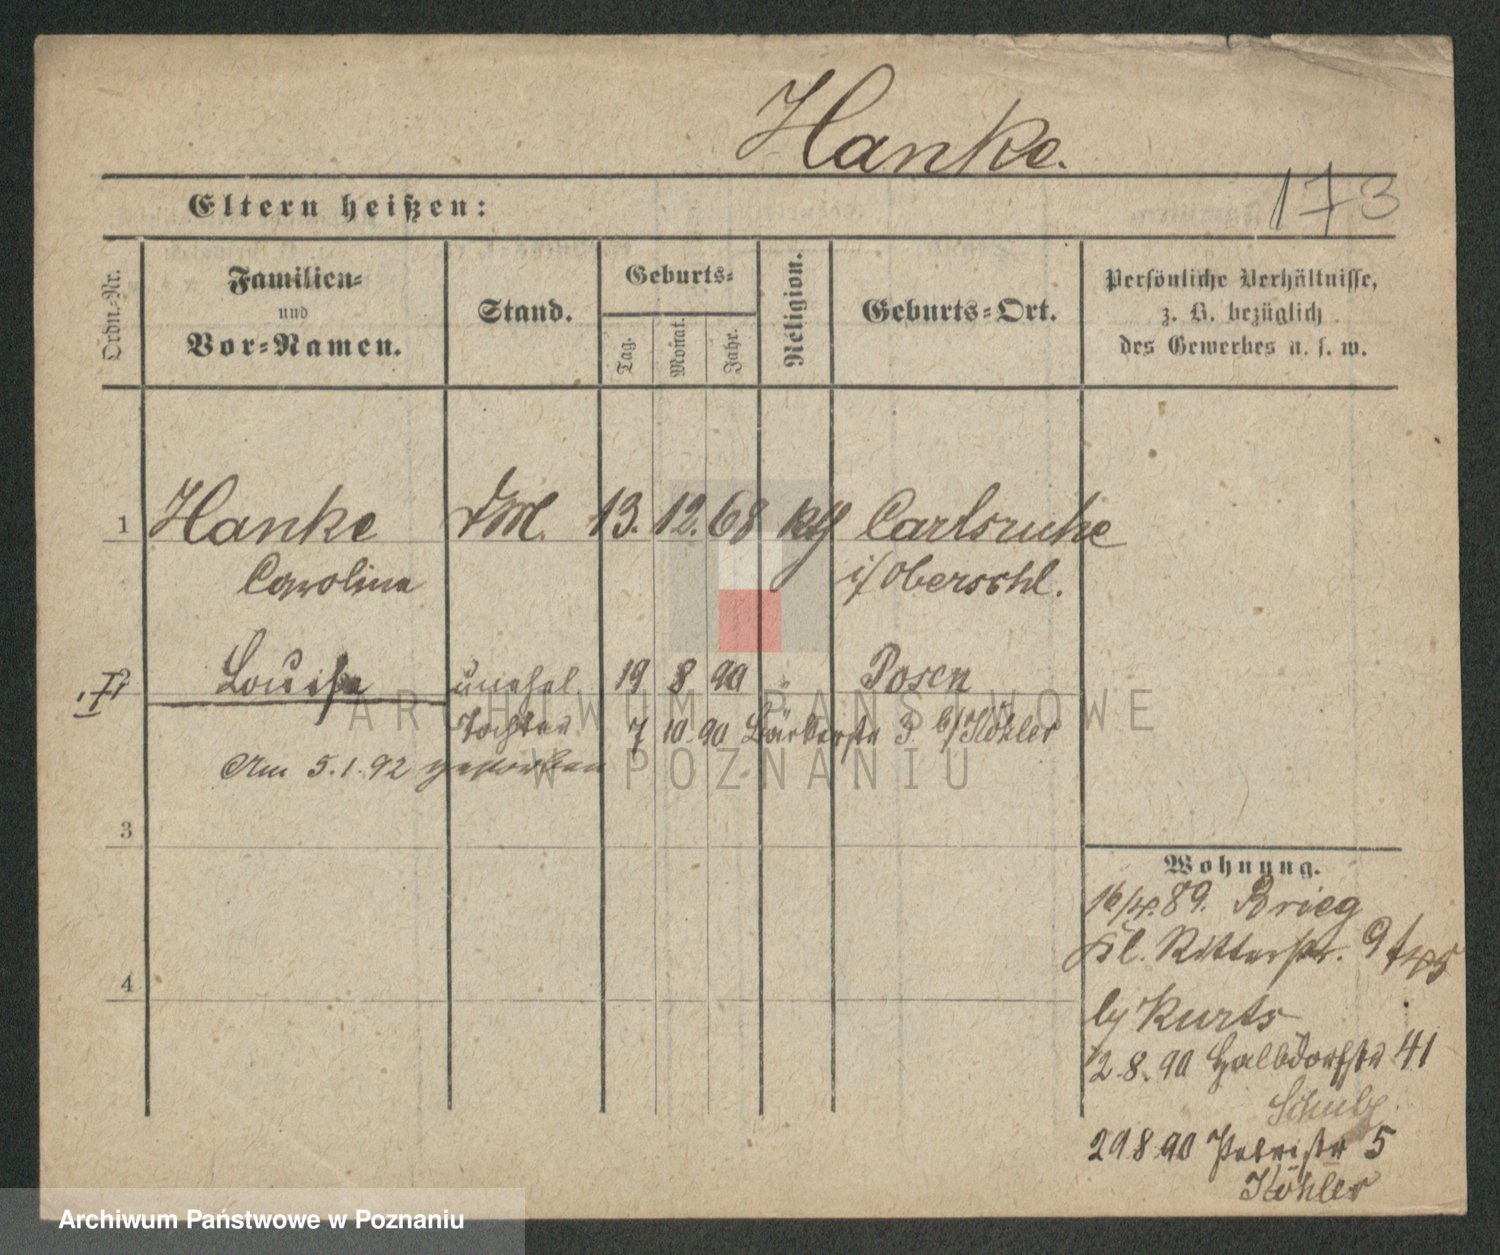 Hanke.
173
Eltern heißen:
Ordn.-Nr.
Familien-
und
Vor-Namen.
Stand.
Geburts-
Tag.
Monat.
Jahr.
Religion.
Geburts-Ort.
Persönliche Verhältnisse,
z. B. bezüglich
des Gewerbes u. s. w.
1 Hanke DM. 13. 12. 68 Carlsruhe
Carolina i/Oberschl.
2 Louise unehel. 19 8 90 " Posen
Tochter 7 10 90 Bäckerstr 3 b/Köhler
Am 5.1.92 gestorben
3
4
Wohnung.
16/4.89. Brieg
Kl. Ritterstr. 9
by Kurts
2.8.90 Halbdorfstr 41
Schulz
29 8 90 Petristr 5
Köhler
ARCHIWUM PAŃSTWOWE
W POZNANIU
Archiwum Państwowe w Poznaniu